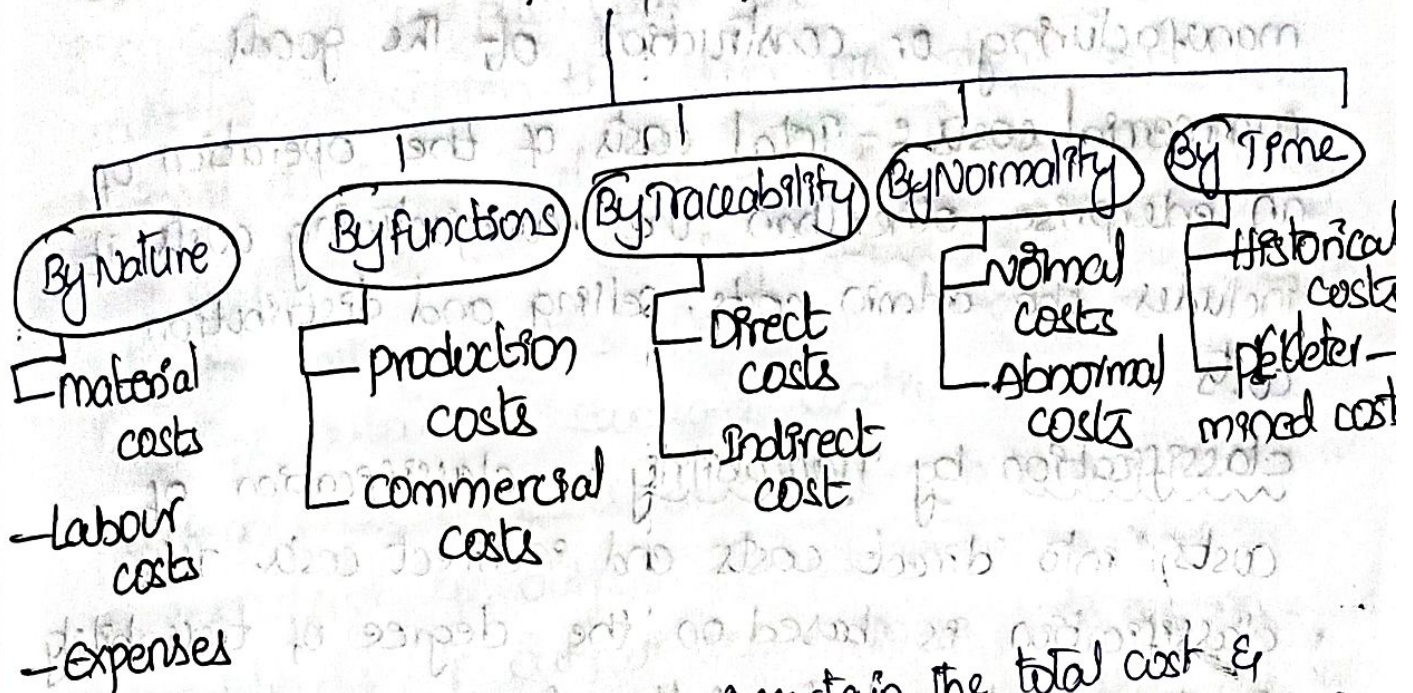 By Nature
material
costs
-Labour
costs
-Expenses
By functions
production
costs
commercial
costs
By Traceability
Direct
costs
Indirect
cost
By Normality
Normal
costs
Abnormal
costs
By Time
Historical
costs
mined cost
the total cost &